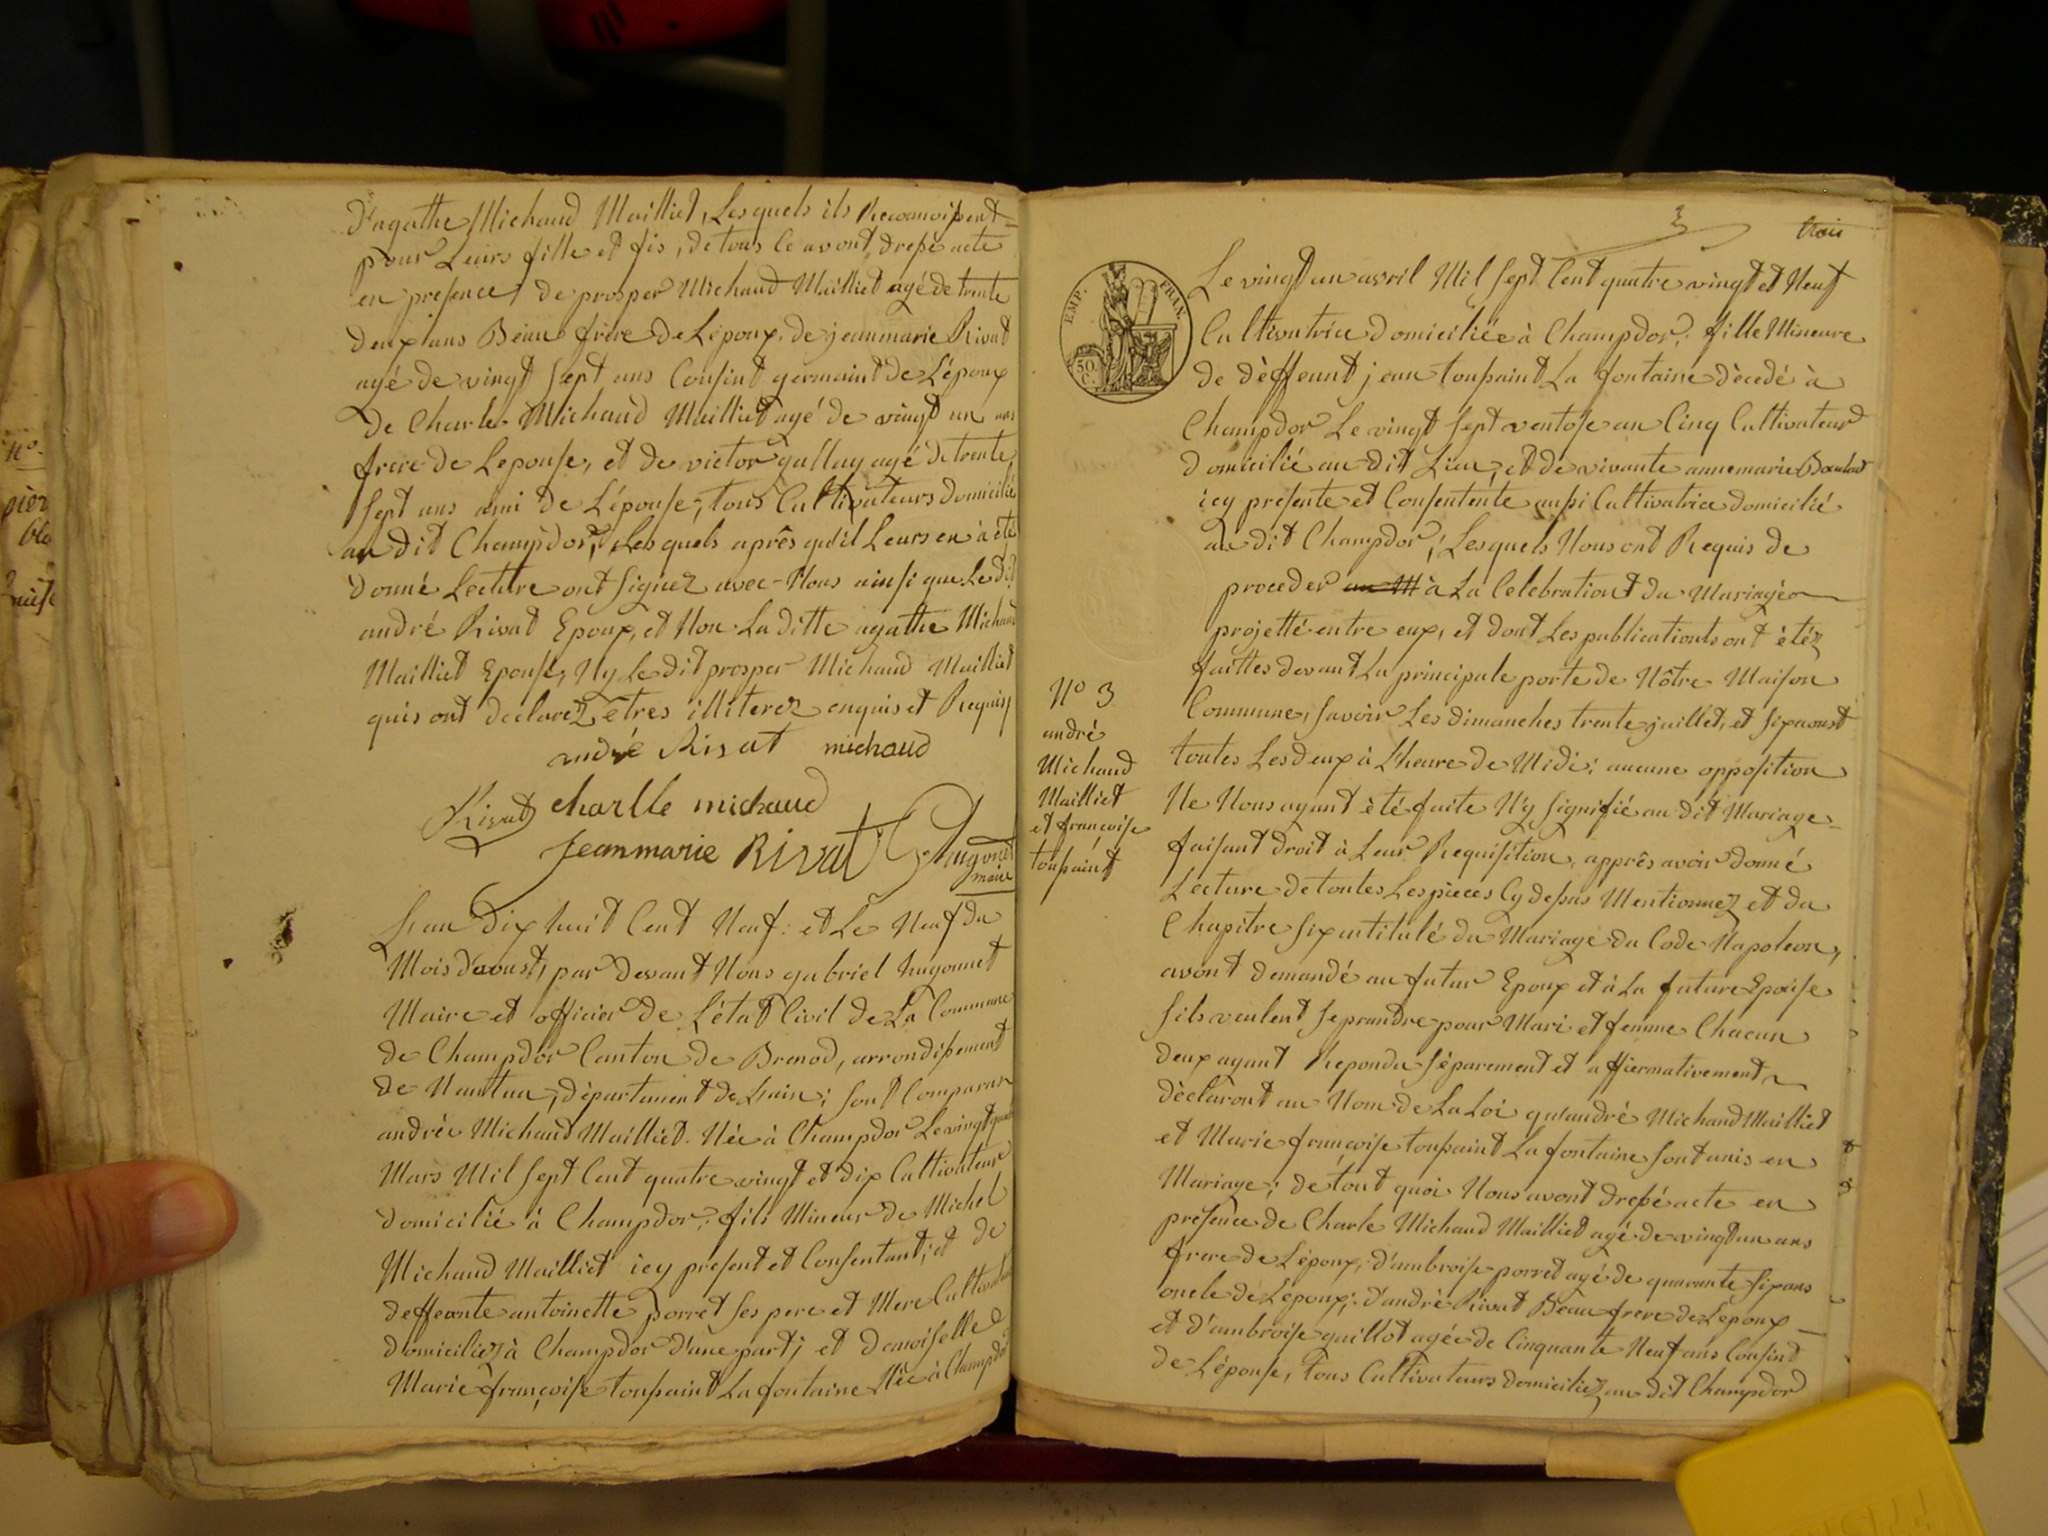 d'agathe Michaud Mailliet, Lesquels ils Reconoissent
pour Leurs fille et fis, de tous ce avont dressé acte
en presence de prosper Michaud Mailliet agé de trente
deux ans Beau frère de Lépoux. de jeanmarie Rivat
agé de vingt sept ans Cousint germaint de L'époux
de Charle Michaud Mailliet agé de vingt un ans
frere de Lepouse, et de victor gallay agé de trente
sept ans ami de L'épouse, tous Cultivateurs domicilié
au dit Champdor, Lesquels après qu'il Leurs en à été
donné Lecture ont signez avec Nous ainsi que Le dit
andré Rivat Epoux, et Non La ditte agathe Michaud
Mailliet Epouse, Ny Le dit prosper Michaud Mailliet
quis ont declarez êtres illiterez enquis et Requis
andré Rivat michaud
Rivat charlle michaud
Jeanmarie Rivat G. hugonnet
maire
L'an dix huit Cent Neuf: et Le Neuf du
Mois d'aoust, par devant Nous gabriel hugonnet
Maire et officier de L'état Civil de La Commune
de Champdor Canton de Brenod, arrondissement
de Nantua, département de Lain; sont Comparus
andrée Michaud Mailliet. Née à Champdor Le vingt quatre
Mars Mil sept Cent quatre vingt et dix Cultivateur
domicilié à Champdor: fils Mineur de Michel
Michaud Mailliet icy present et Consentant, et de
deffeunte antoinette porret ses pere et Mere Cultivateurs
domiciliez à Champdor d'une part; et demoiselle
Marie françoise toussaint La fontaine Née à Champdor
3 trois
EMP. FRAN.
50 C.
Le vingt un avril Mil sept Cent quatre vingt et Neuf
Cultivatrice domiciliée à Champdor, fille Mineure
de deffeunt jean toussaint La fontaine décedé à
Champdor Le vingt sept ventose an Cinq Cultivateur
domicilié au dit Lieu, et de vivante annemarie
icy presente et Consentente aussi Cultivatrice domicilié
au dit Champdor; Lesquels Nous ont Requis de
proceder à La Celebrationt du Mariagée
projetté entre eux, et dont Les publicationts ont étéz
faittes devant La principale porte de Nôtre Maison
Commune, savoir Les dimanches trente juillet, et six aoust
toutes Les deux à L'heure de Midi; aucune opposition
Ne Nous ayant été faite N'y signifié au dit Mariage
faisant droit à Leur Requisition, apprês avoir donné
Lecture de toutes Les pieces Cy dessus Mentionnez et du
Chapitre six intitulé du Mariage du Code Napoleon,
avont demandé au futur Epoux et à La future Epouse
s'ils veulent se prandre pour Mari et femme Chacun
deux ayant Repondu séparement et affiermativement
déclaront au Nom de La Loi qu'andré Michaud Mailliet
et Marie françoise toussaint La fontaine sont unis en
Mariage; de tout quoi Nous avont dressé acte en
présence de Charle Michaud Mailliet agé de vingt un ans
frere de Lépoux, d'ambroise porret agé de quarante six ans
oncle de Lépoux; d'andré Rivat Beau frere de Lépoux
et d'ambroise guillot agée de Cinquante Neuf ans Cousint
de Lépouse, tous Cultivateurs domiciliez au dit Champdor
N° 3
andré
Michaud
Mailliet
et françoise
toussaint